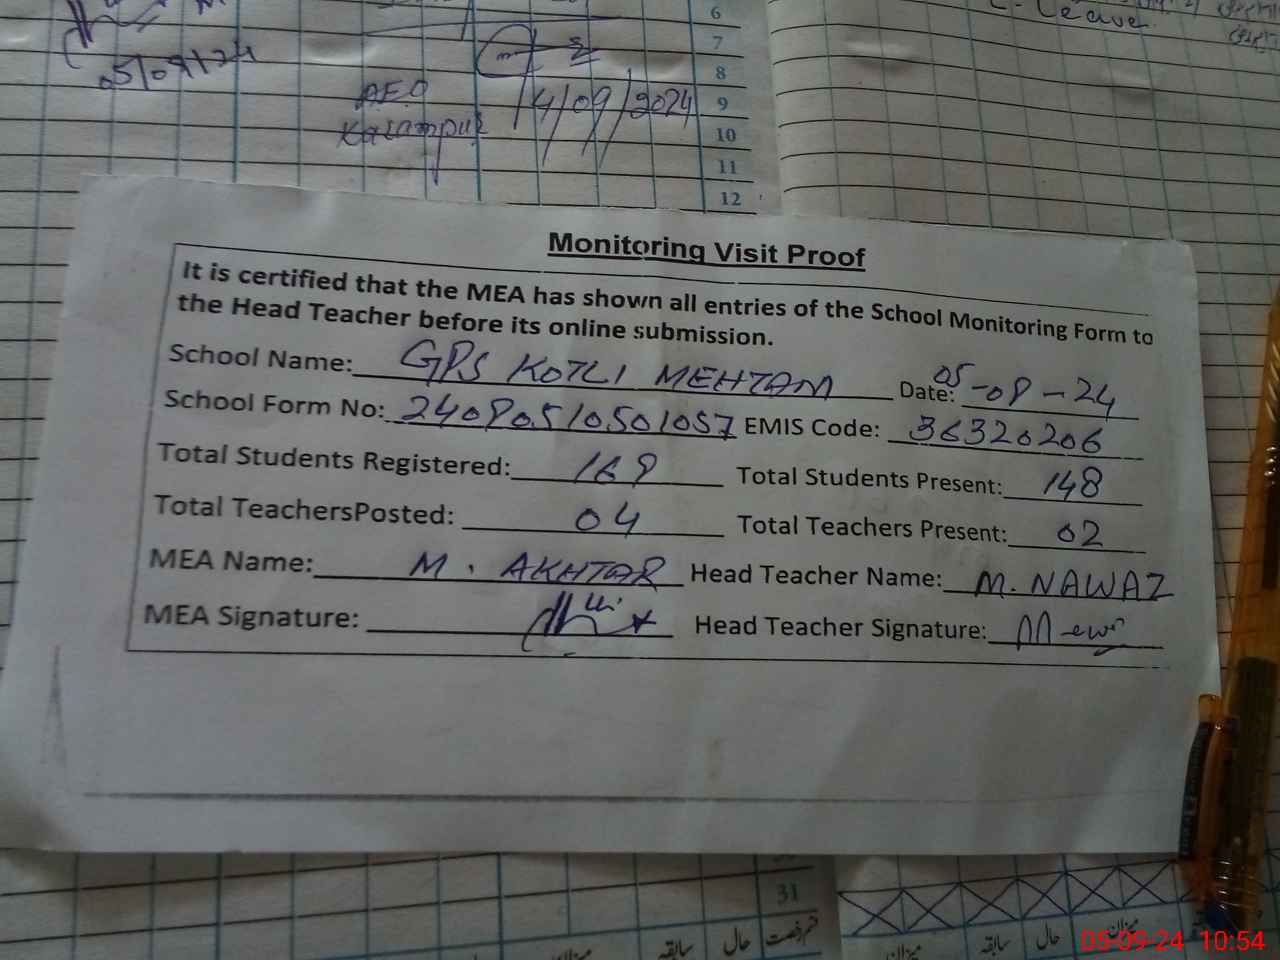 C. Leave
6
7
05/09/24
8
AEO 14/09/2024 9
Kalampur 10
11
12
Monitoring Visit Proof
It is certified that the MEA has shown all entries of the School Monitoring Form to
the Head Teacher before its online submission.
School Name: GPS KOTLI MEHTAM Date: 05-09-24
School Form No: 24090510501057 EMIS Code: 36320206
Total Students Registered: 169 Total Students Present: 148
Total TeachersPosted: 04 Total Teachers Present: 02
MEA Name: M. AKHTAR Head Teacher Name: M. NAWAZ
MEA Signature: Head Teacher Signature:
31
حال سابقہ میزان
حال سابقہ میزان
05-09-24 10:54